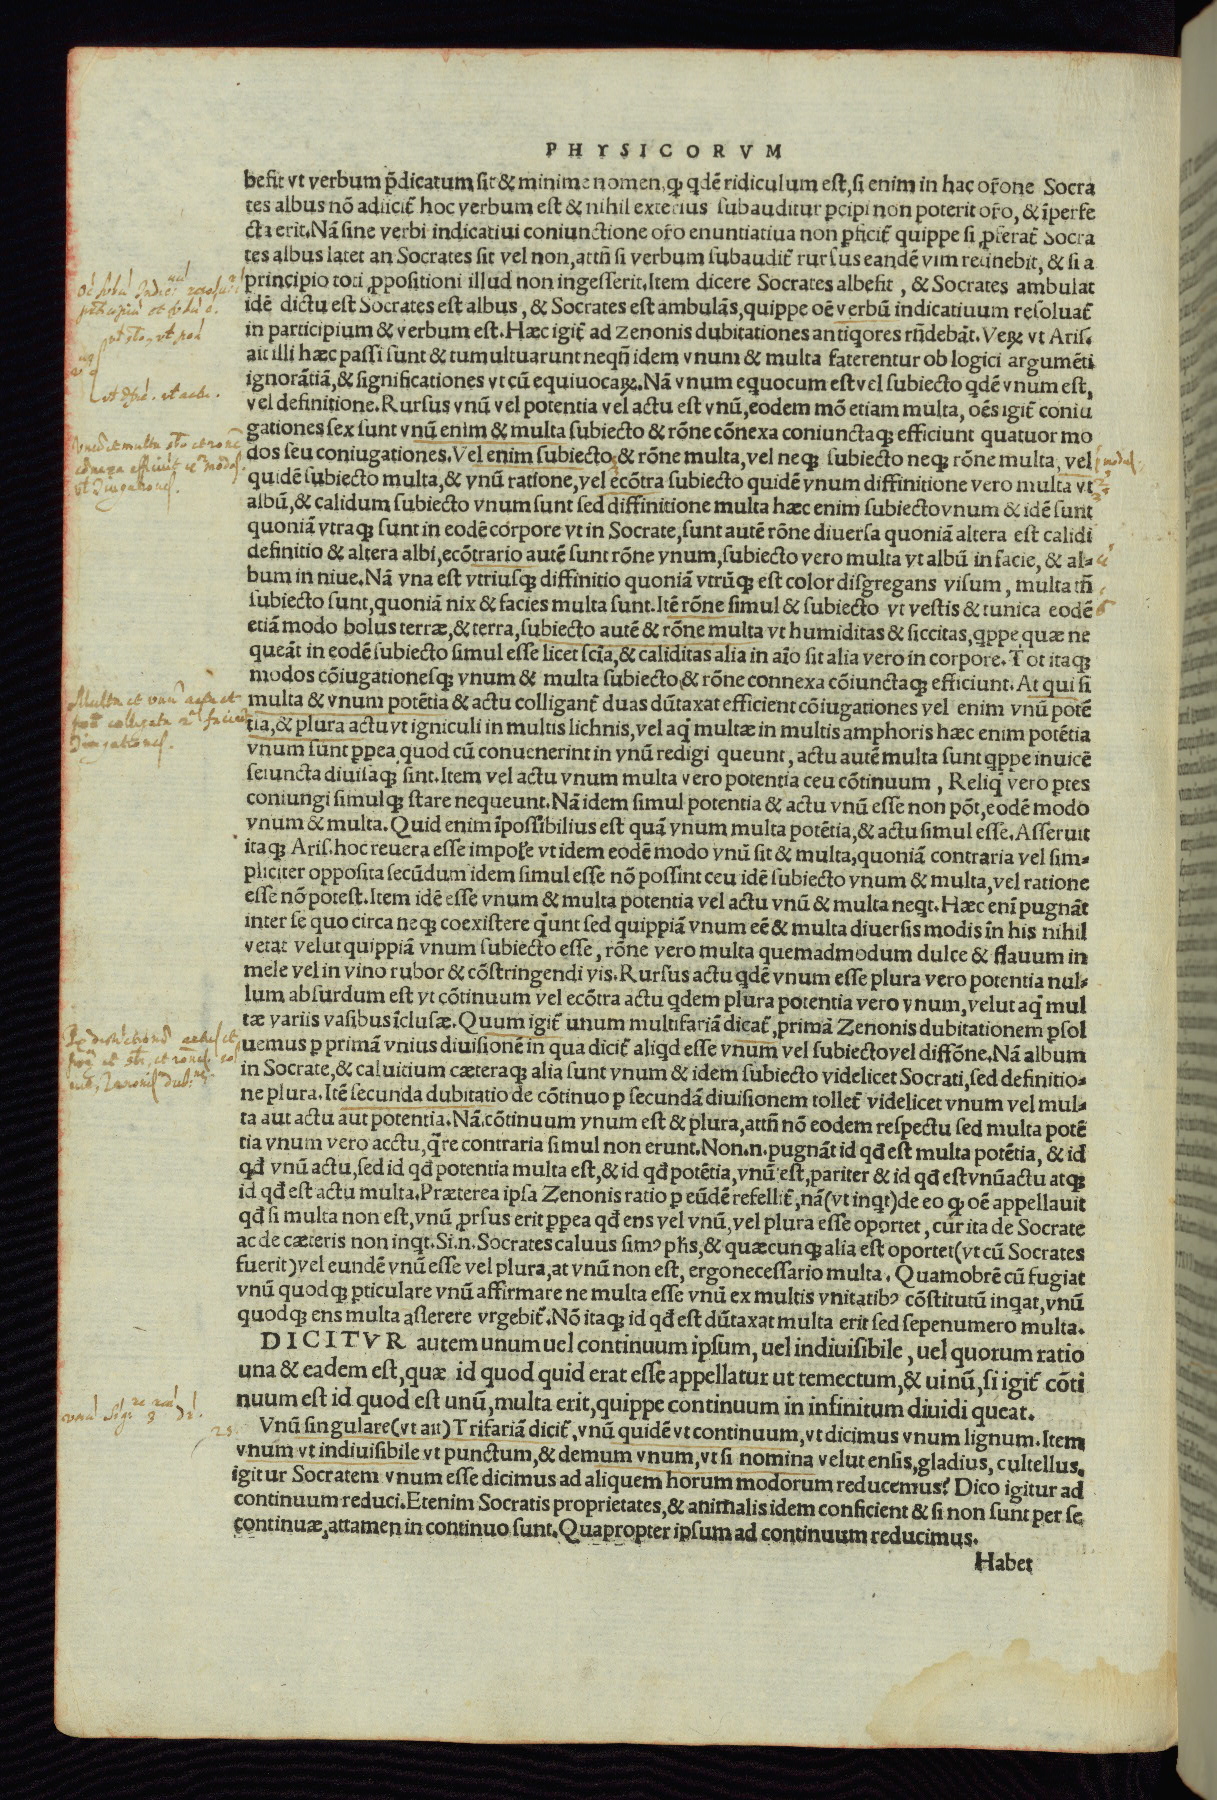 PHYSICORVM
befit vt verbum p̃dicatum sit & minime nomen, ꝙ qdẽ ridiculum est, si enim in hac or̃one Socra
tes albus nõ adiicit̃ hoc verbum est & nihil exterius subauditur ꝑcipi non poterit or̃o, & ĩperfe
cta erit. Nã sine verbi indicatiui coniunctione or̃o enuntiatiua non ꝑficit̃ quippe si ꝓferat̃ Socra
tes albus latet an Socrates sit vel non, attñ si verbum subaudit̃ rursus eandẽ vim retinebit, & si a
principio toti ꝓpositioni illud non ingesserit. Item dicere Socrates albefit, & Socrates ambulat
idẽ dictu est Socrates est albus, & Socrates est ambulãs, quippe oẽ verbũ indicatiuum resoluat̃
in participium & verbum est. Hæc igit̃ ad Zenonis dubitationes antiqores rñdebãt. Veꝝ vt Aris.
ait illi hæc passi sunt & tumultuarunt neqñ idem vnum & multa faterentur ob logici argumẽti
ignorãtiã, & significationes vt cũ equiuocaꝝ. Nã vnum equocum est vel subiecto qdẽ vnum est,
vel definitione. Rursus vnũ vel potentia vel actu est vnũ, eodem mõ etiam multa, oẽs igit̃ coniu
gationes sex sunt vnũ enim & multa subiecto & rõne cõnexa coniunctaqꝫ efficiunt quatuor mo
dos seu coniugationes. Vel enim subiecto & rõne multa, vel neqꝫ subiecto neqꝫ rõne multa, vel
quidẽ subiecto multa, & vnũ ratione, vel ecõtra subiecto quidẽ vnum diffinitione vero multa vt
albũ, & calidum subiecto vnum sunt sed diffinitione multa hæc enim subiecto vnum & idẽ sunt
quoniã vtraqꝫ sunt in eodẽ corpore vt in Socrate, sunt autẽ rõne diuersa quoniã altera est calidi
definitio & altera albi, ecõtrario autẽ sunt rõne vnum, subiecto vero multa vt albũ in facie, & al-
bum in niue. Nã vna est vtriusqꝫ diffinitio quoniã vtrũqꝫ est color disgregans visum, multa tñ
subiecto sunt, quoniã nix & facies multa sunt. Itẽ rõne simul & subiecto vt vestis & tunica eodẽ
etiã modo bolus terræ, & terra, subiecto autẽ & rõne multa vt humiditas & siccitas, qppe quæ ne
queãt in eodẽ subiecto simul esse licet scĩa, & caliditas alia in aĩo sit alia vero in corpore. Tot itaqꝫ
modos cõiugationesqꝫ vnum & multa subiecto, & rõne connexa cõiunctaqꝫ efficiunt. At qui si
multa & vnum potẽtia & actu colligant̃ duas dũtaxat efficient cõiugationes vel enim vnũ potẽ
tia, & plura actu vt igniculi in multis lichnis, vel aq̃ multæ in multis amphoris hæc enim potẽtia
vnum sunt ꝑꝑea quod cũ conuenerint in vnũ redigi queunt, actu autẽ multa sunt qppe inuicẽ
seiuncta diuisaqꝫ sint. Item vel actu vnum multa vero potentia ceu cõtinuum, Reliq̃ vero ꝑtes
coniungi simulqꝫ stare nequeunt. Nã idem simul potentia & actu vnũ esse non põt, eodẽ modo
vnum & multa. Quid enim ĩpossibilius est quã vnum multa potẽtia, & actu simul esse. Asseruit
itaqꝫ Aris. hoc reuera esse impole vt idem eodẽ modo vnũ sit & multa, quoniã contraria vel sim-
pliciter opposita secũdum idem simul esse nõ possint ceu idẽ subiecto vnum & multa, vel ratione
esse nõ potest. Item idẽ esse vnum & multa potentia vel actu vnũ & multa neqt. Hæc enĩ pugnãt
inter se quo circa neqꝫ coexistere q̃unt sed quippiã vnum eẽ & multa diuersis modis in his nihil
vetat velut quippiã vnum subiecto esse, rõne vero multa quemadmodum dulce & flauum in
mele vel in vino rubor & cõstringendi vis. Rursus actu qdẽ vnum esse plura vero potentia nul-
lum absurdum est vt cõtinuum vel ecõtra actu qdem plura potentia vero vnum, velut aq̃ mul
tæ variis vasibus ĩclusæ. Quum igit̃ unum multifariã dicat̃, primã Zenonis dubitationem ꝑsol
uemus ꝑ primã vnius diuisionẽ in qua dicit̃ aliqd esse vnum vel subiecto vel diffõne. Nã album
in Socrate, & caluitium cæteraqꝫ alia sunt vnum & idem subiecto videlicet Socrati, sed definitio-
ne plura. Itẽ secunda dubitatio de cõtinuo ꝑ secundã diuisionem tollet̃ videlicet vnum vel mul-
ta aut actu aut potentia. Nã cõtinuum vnum est & plura, attñ nõ eodem respectu sed multa potẽ
tia vnum vero acctu, q̃re contraria simul non erunt. Non. n. pugnãt id qđ est multa potẽtia, & id
qđ vnũ actu, sed id qđ potentia multa est, & id qđ potẽtia, vnũ est, pariter & id qđ est vnũ actu atqꝫ
id qđ est actu multa. Præterea ipsa Zenonis ratio ꝑ eũdẽ refellit̃, nã (vt inqt) de eo ꝙ oẽ appellauit
qđ si multa non est, vnũ ꝓrsus erit ꝑꝑea qđ ens vel vnũ, vel plura esse oportet, cur ita de Socrate
ac de cæteris non inqt. Si. n. Socrates caluus simꝰ phs, & quæcunqꝫ alia est oportet (vt cũ Socrates
fuerit) vel eundẽ vnũ esse vel plura, at vnũ non est, ergo necessario multa. Quamobrẽ cũ fugiat
vnũ quodqꝫ ꝑticulare vnũ affirmare ne multa esse vnũ ex multis vnitatibꝰ cõstitutũ inqat, vnũ
quodqꝫ ens multa asserere vrgebit̃. Nõ itaqꝫ id qđ est dũtaxat multa erit sed sepenumero multa.
DICITVR autem unum uel continuum ipsum, uel indiuisibile, uel quorum ratio
una & eadem est, quæ id quod quid erat esse appellatur ut temectum, & uinũ, si igit̃ cõti
nuum est id quod est unũ, multa erit, quippe continuum in infinitum diuidi queat.
Vnũ singulare (vt ait) Trifariã dicit̃, vnũ quidẽ vt continuum, vt dicimus vnum lignum. Item
vnum vt indiuisibile vt punctum, & demum vnum, vt si nomina velut ensis, gladius, cultellus,
igitur Socratem vnum esse dicimus ad aliquem horum modorum reducemus? Dico igitur ad
continuum reduci. Etenim Socratis proprietates, & animalis idem conficient & si non sunt per se
continuæ, attamen in continuo sunt. Quapropter ipsum ad continuum reducimus.
Habet